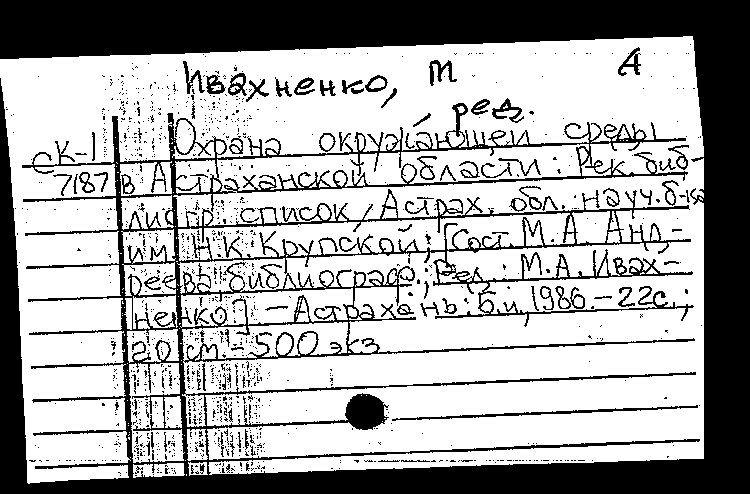 Ивахненко, М А
ред.
Охрана окружающей среды
СК-1
7187 в Астраханской области : Рек. биб-
лиогр. список / Астрах. обл. науч. б-ка
им. Н.К. Крупской; [Сост. М.А. Анд-
реева библиограф.; Ред.: М.А. Ивах-
ненко] - Астрахань: б.и., 1986. - 22с.;
20 см. - 500 экз